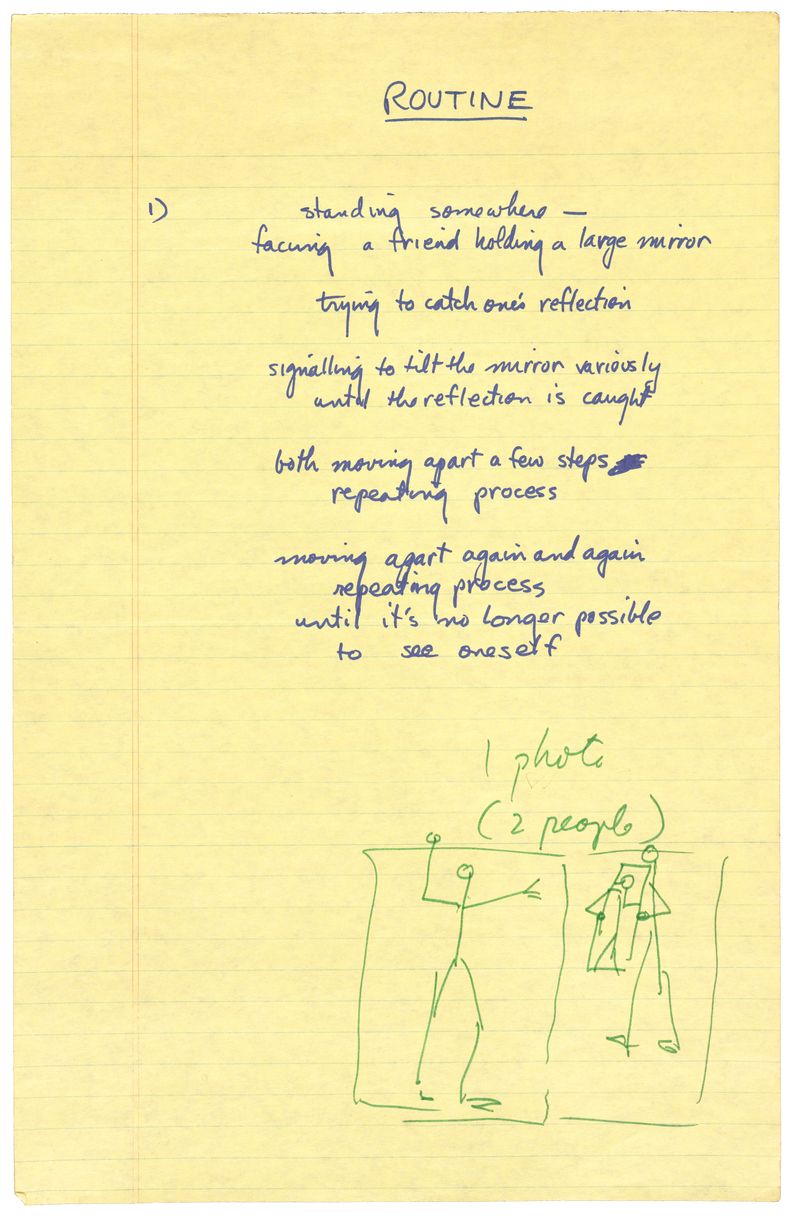 ROUTINE
1) standing somewhere —
facing a friend holding a large mirror
trying to catch one's reflection
signalling to tilt the mirror variously
until the reflection is caught
both moving apart a few steps
repeating process
moving apart again and again
repeating process
until it's no longer possible
to see oneself
1 photo
(2 people)